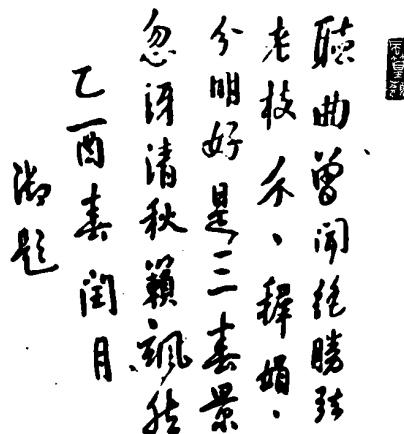 聽曲曾聞絶勝弦
老枝个、稺娟、
分明好是三春景
忽訝清秋籟颯然
乙酉春閏月
御題